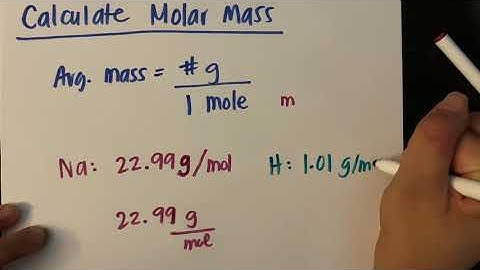 Calculate Molar Mass
Avg. mass = # g
1 mole m
Na: 22.99 g/mol H: 1.01 g/m
22.99 g
mol